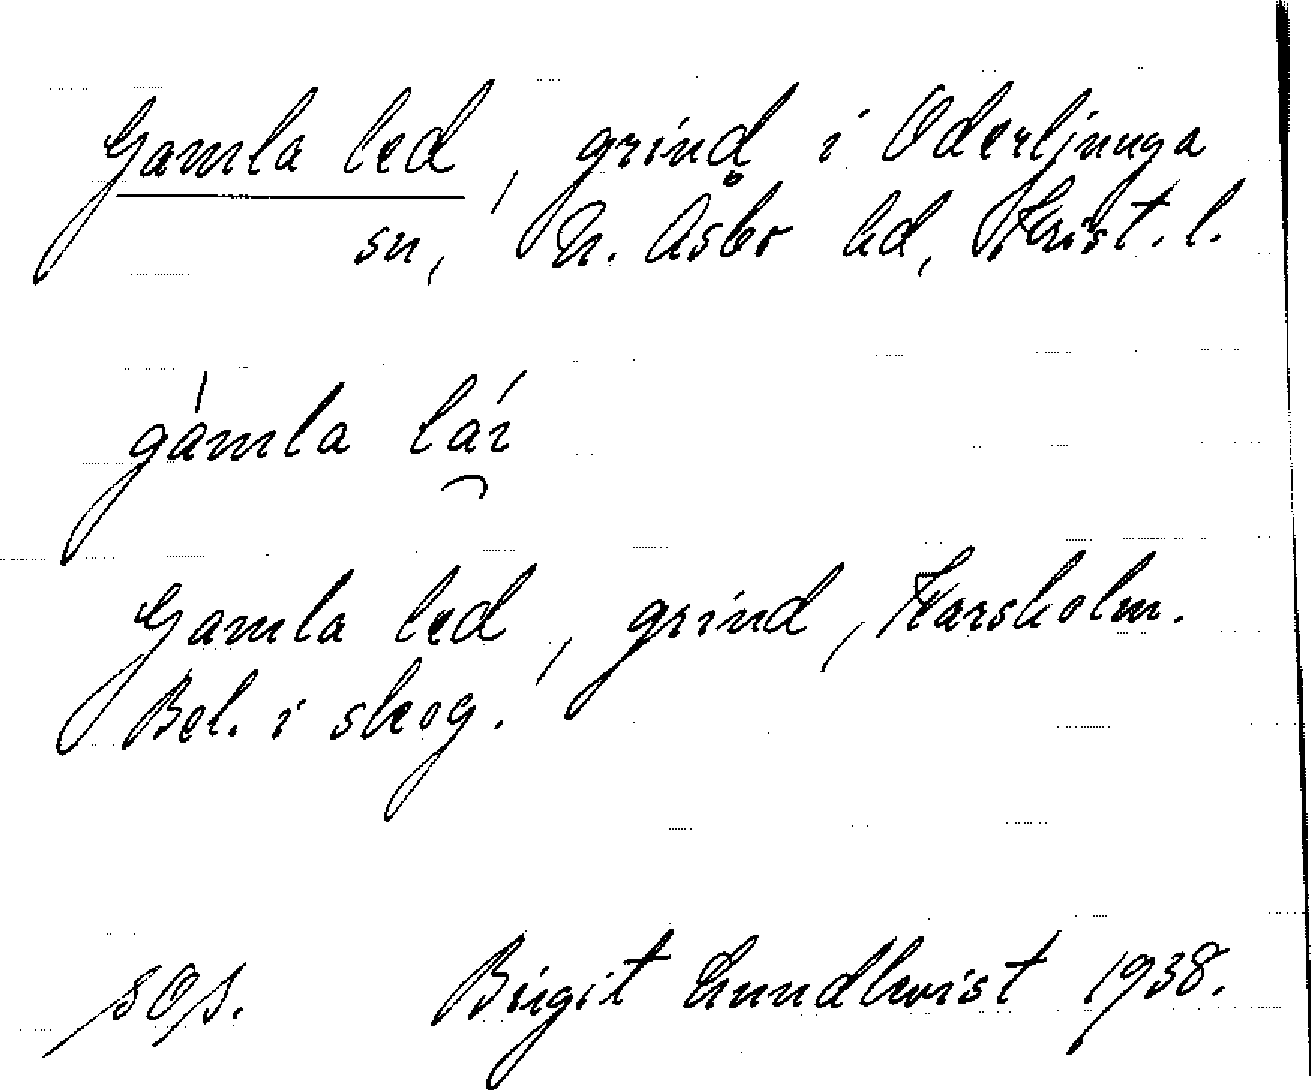 Gamla led, grind i Oderljunga
sn, N. Åsbo hd, Krist. l.
gámla lái
Gamla led, grind, Karsholm.
Bel. i skog.
sOs. Birgit Lundkvist 1938.